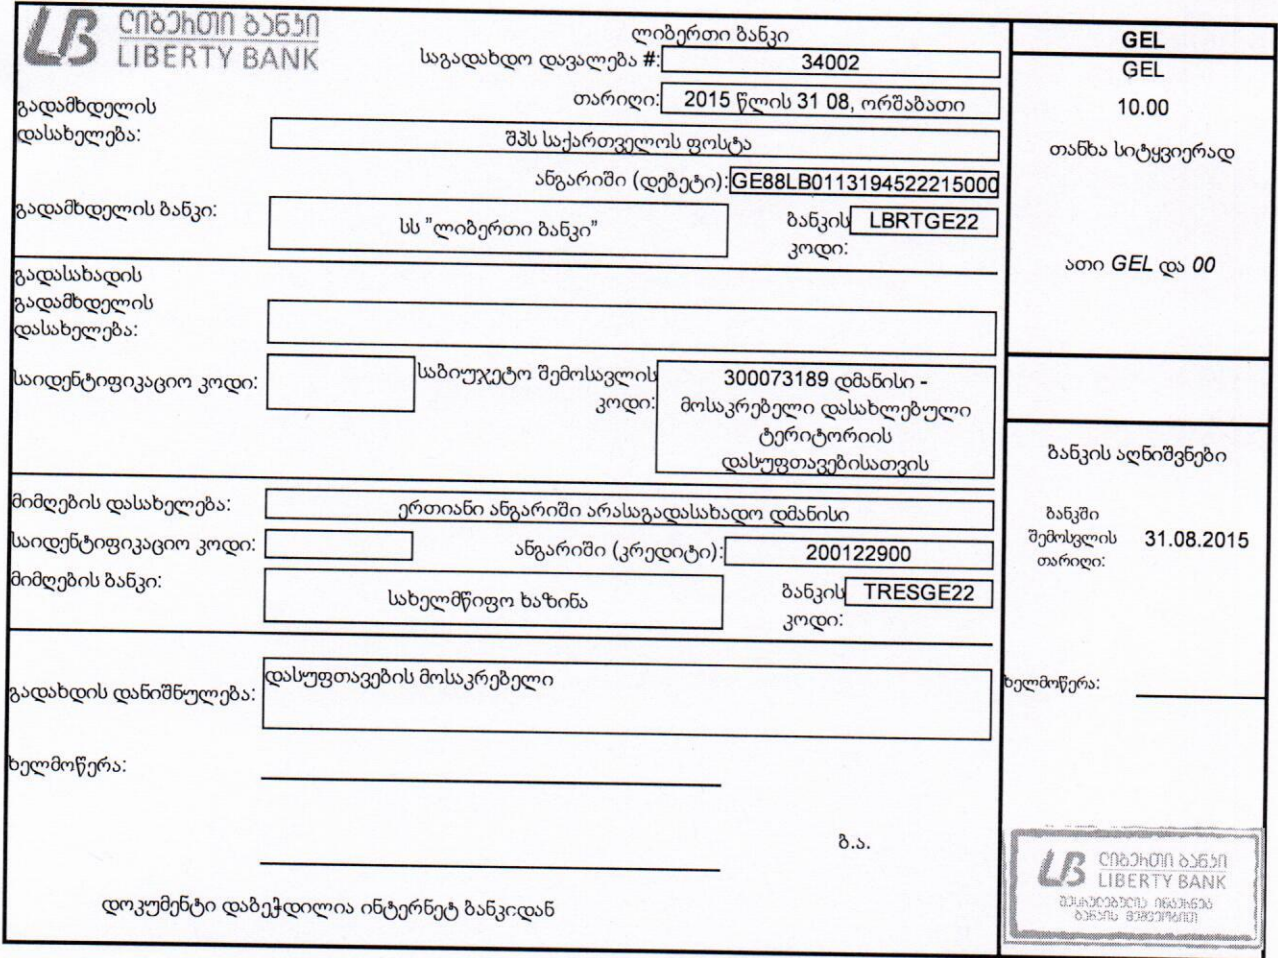 ლიბერთი ბანკი
LIBERTY BANK
ლიბერთი ბანკი
საგადახდო დავალება #: 34002
თარიღი: 2015 წლის 31 08, ორშაბათი
გადამხდელის
დასახელება: შპს საქართველოს ფოსტა
ანგარიში (დებეტი): GE88LB0113194522215000
გადამხდელის ბანკი: სს "ლიბერთი ბანკი" ბანკის კოდი: LBRTGE22
გადასახადის
გადამხდელის
დასახელება:
საიდენტიფიკაციო კოდი:
საბიუჯეტო შემოსავლის
კოდი:
300073189 დმანისი -
მოსაკრებელი დასახლებული
ტერიტორიის
დასუფთავებისათვის
მიმღების დასახელება: ერთიანი ანგარიში არასაგადასახადო დმანისი
საიდენტიფიკაციო კოდი: ანგარიში (კრედიტი): 200122900
მიმღების ბანკი: სახელმწიფო ხაზინა ბანკის კოდი: TRESGE22
გადახდის დანიშნულება: დასუფთავების მოსაკრებელი
ხელმოწერა:
ბ.ა.
დოკუმენტი დაბეჭდილია ინტერნეტ ბანკიდან
GEL
GEL
10.00
თანხა სიტყვიერად
ათი GEL და 00
ბანკის აღნიშვნები
ბანკში
შემოსვლის 31.08.2015
თარიღი:
ხელმოწერა:
ლიბერთი ბანკი
LIBERTY BANK
შესრულებულია ინტერნეტ
ბანკის მეშვეობით